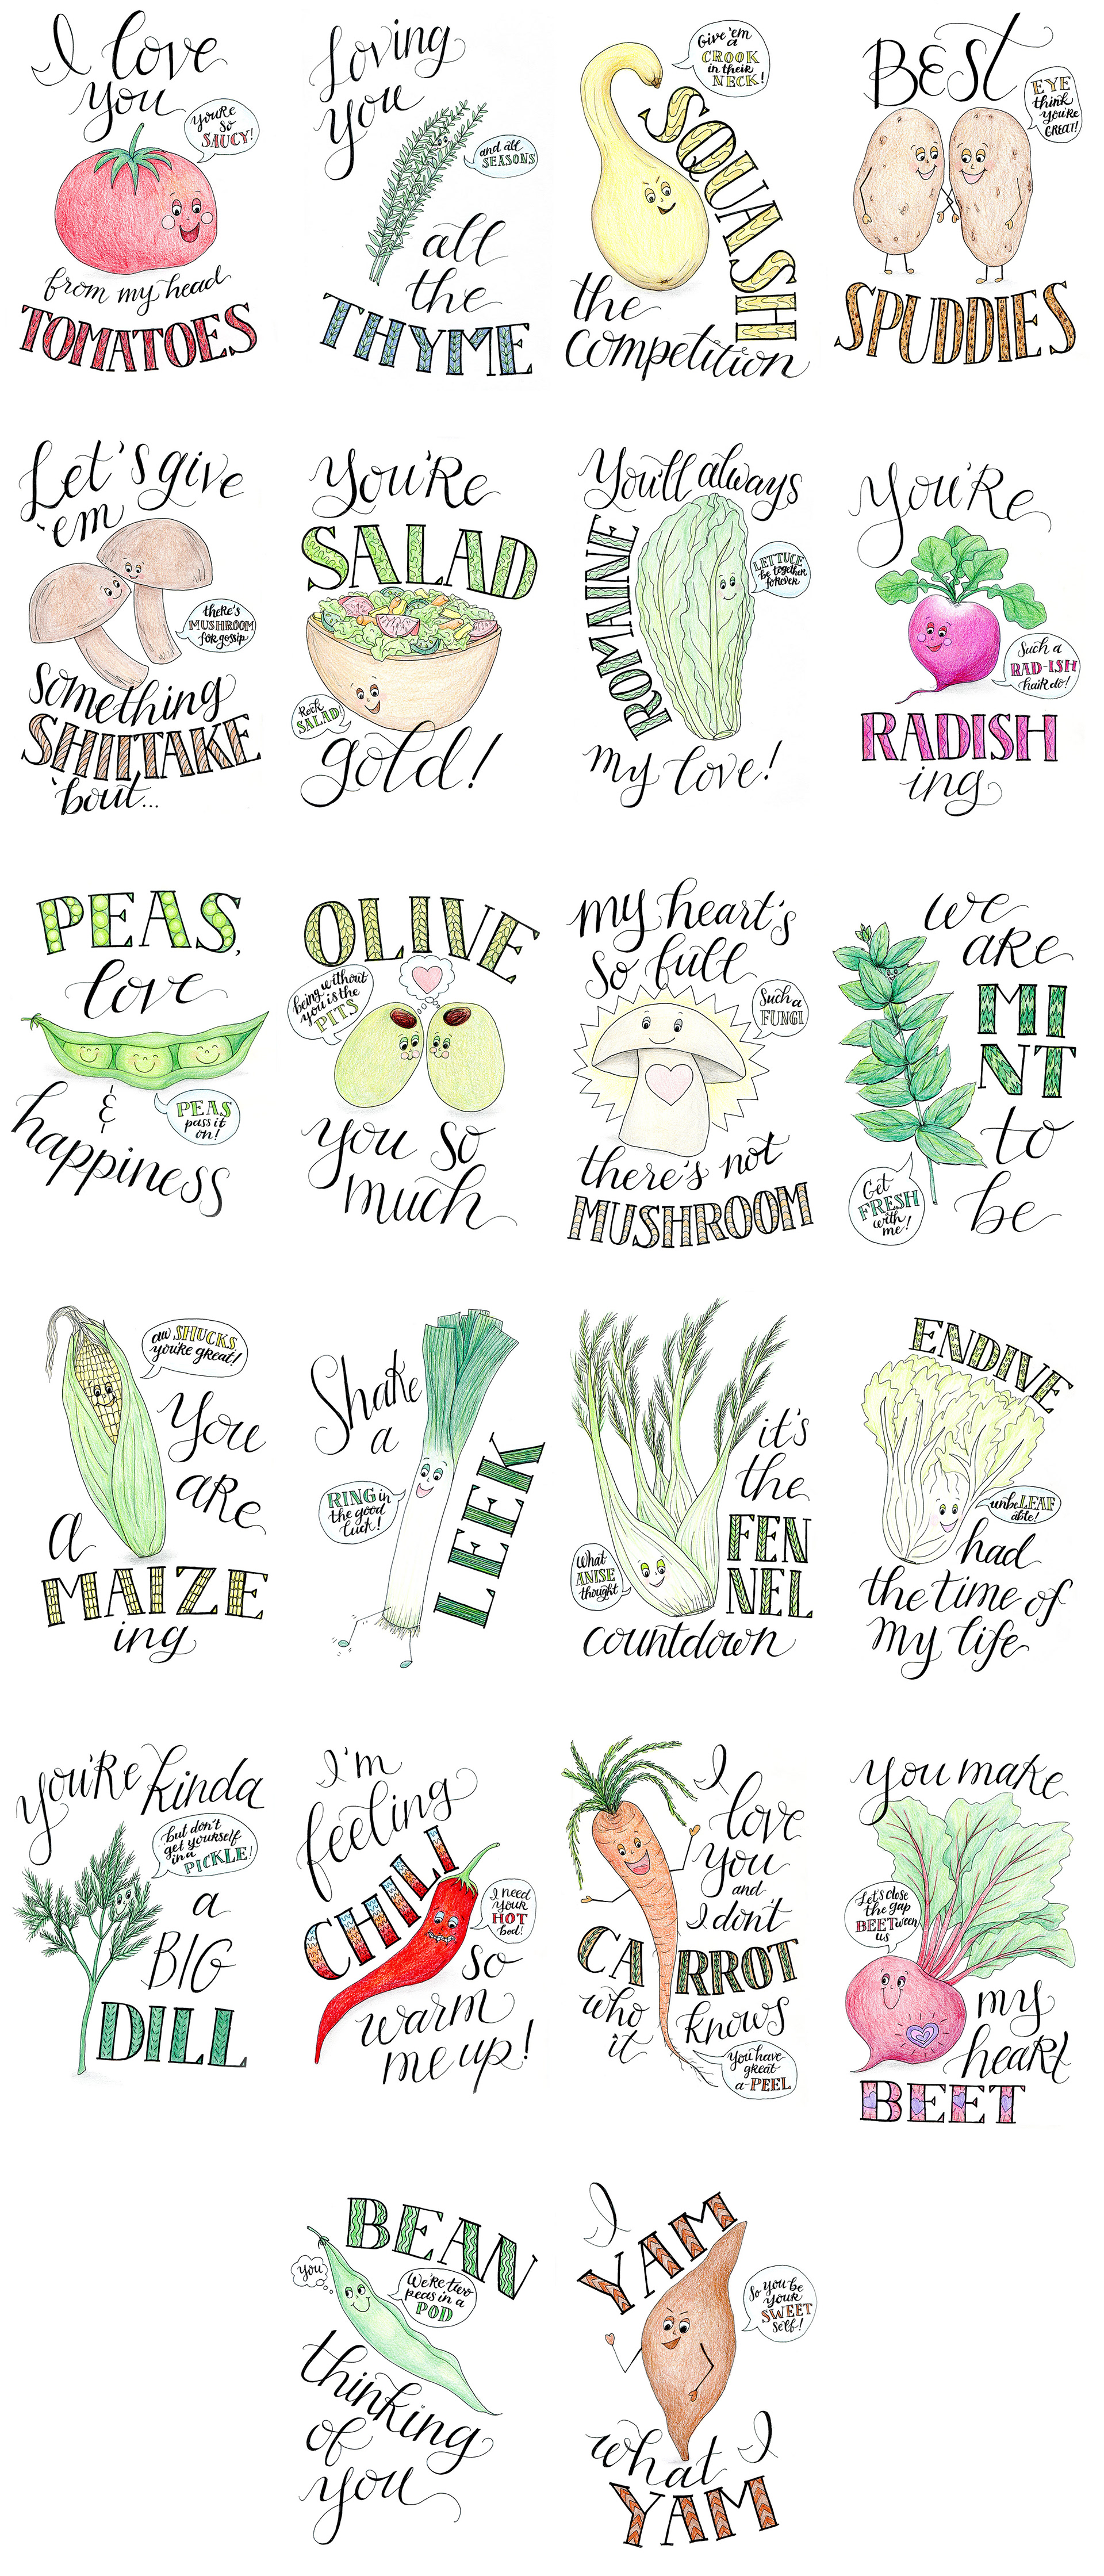 I love
you
you're
so
SAUCY!
from my head
TOMATOES
Loving
you
and all
SEASONS
all
the
THYME
Give 'em
a
CROOK
in their
NECK!
SQUASH
the
competition
BEST
EYE
think
you're
GREAT!
SPUDDIES
Let's give
'em
there's
MUSHROOM
for gossip
something
SHIITAKE
'bout...
You're
SALAD
Rock
SALAD
gold!
You'll always
ROMAINE
LETTUCE
be together
forever
my love!
you're
Such a
RAD-ISH
hairdo!
RADISH
ing
PEAS,
love
&
PEAS
pass it
on!
happiness
OLIVE
being without
you is the
PITS
you so
much
my heart's
so full
Such a
FUNGI
there's not
MUSHROOM
we
are
MI
NT
to
be
Get
FRESH
with
me!
aw SHUCKS
you're great!
You
are
a
MAIZE
ing
Shake
a
LEEK
RING in
the good
luck!
it's
the
FEN
NEL
What
ANISE
thought
countdown
ENDIVE
unbeLEAF
able!
had
the time of
my life
you're kinda
but don't
get yourself
in a
PICKLE!
a
BIG
DILL
I'm
feeling
CHILI
I need
your
HOT
bod!
so
warm
me up!
I
love
you
and
I don't
CARROT
who
knows
it
You have
great
a-PEEL
you make
Let's close
the gap
BEETween
us
my
heart
BEET
BEAN
You
We're two
peas in a
POD
thinking
of
you
I
YAM
So you be
your
SWEET
self!
what I
YAM